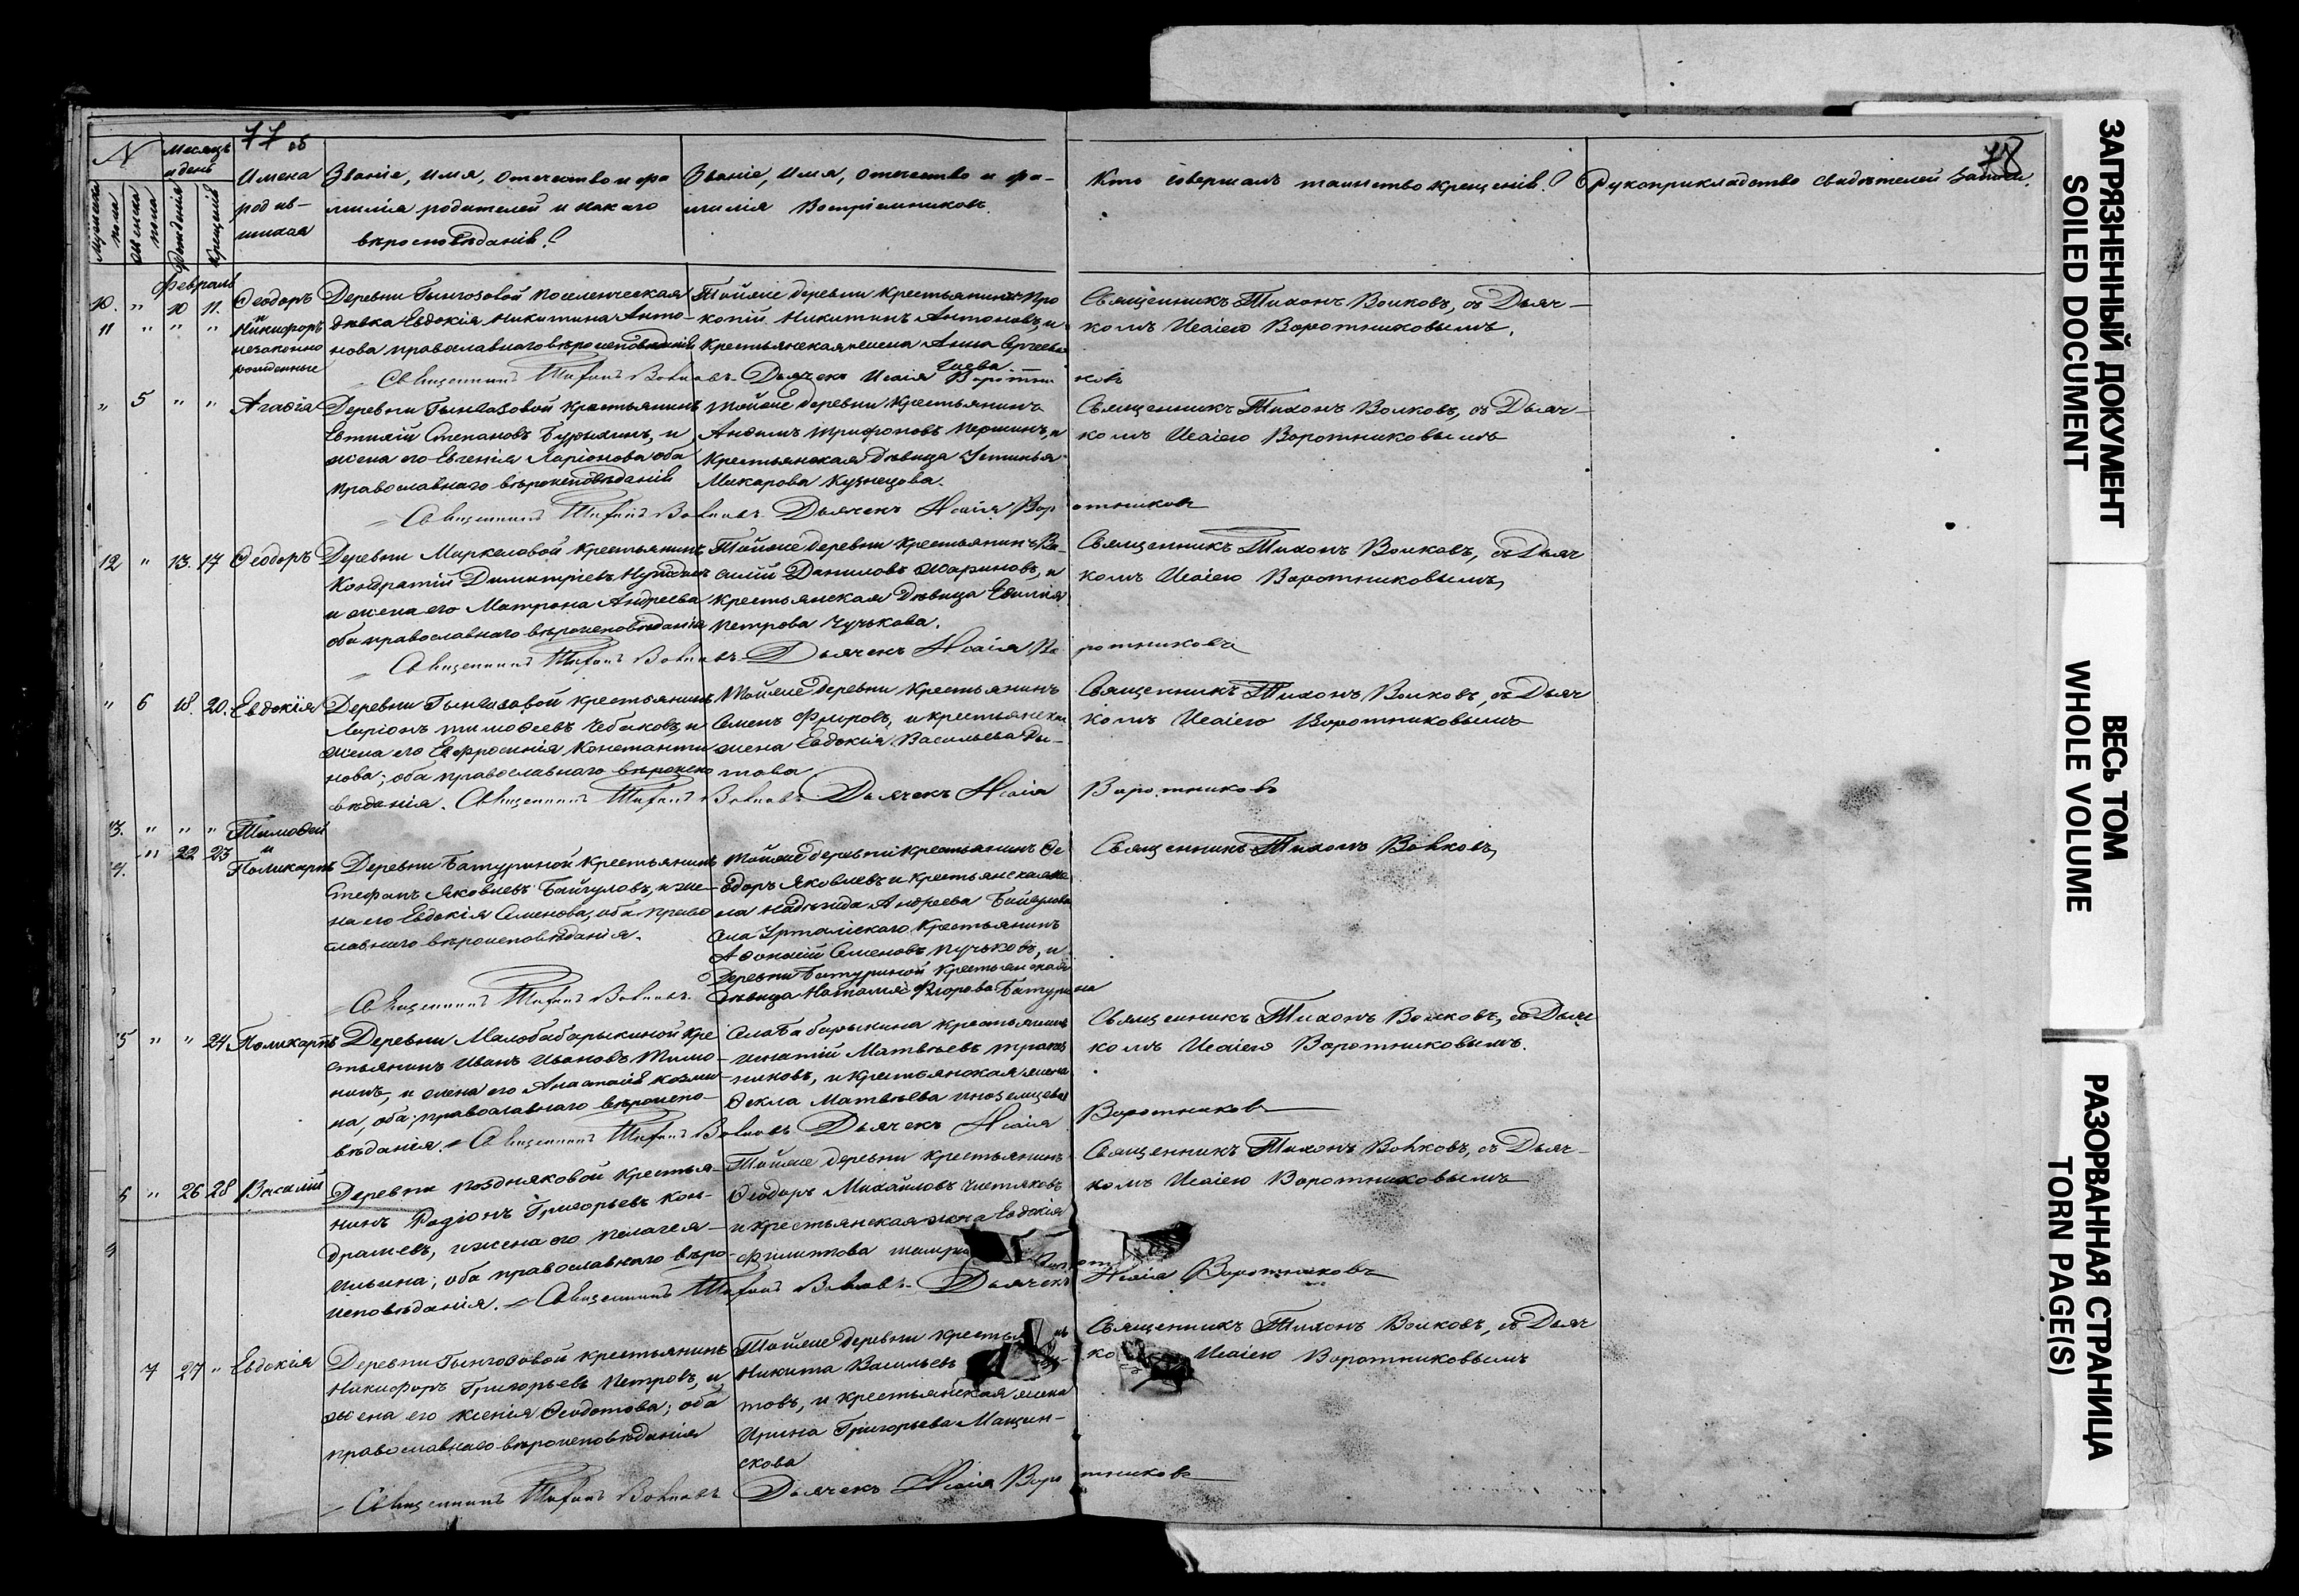 77 об
78
N
Месяцъ и день
Мужеска пола
Женска пола
Рожденія
Крещенія
Имена родив-
шихся
Званіе, имя, отчество и фа
милія родителей и какого
вѣроисповѣданія?
Званіе, имя, отчество и фа-
милія Воспріемниковъ.
Кто совершалъ таинство крещенія?
Рукоприкладство свидѣтелей записи.
Февраль
10. " 10 11. Ѳеодоръ
11 " " " и Никифоръ
незаконно
рожденные
Деревни Поселенческая
дѣвка Евдокія Никитина Анто-
нова православнаго вѣроисповѣданія
Тойже деревни Крестьянинъ Про
копій Никитинъ Антоновъ, и
Крестьянская жена Анна Сергеева
Священникъ Тихонъ Волковъ, съ Дьяч-
комъ Исаіею Воротниковымъ.
Священникъ Тихонъ Волковъ. Дьячекъ Исаія Воротни
ковъ
" 5 " " Агафія
Деревни Крестьянинъ
Евтихій Степановъ и
жена его Евгенія Ларіонова оба
православнаго вѣроисповѣданія
Тойже деревни Крестьянинъ
Анѳимъ Трифоновъ Першинъ, и
Крестьянская дѣвица Устинья
Макарова Кузнецова.
Священникъ Тихонъ Волковъ, съ Дьяч-
комъ Исаіею Воротниковымъ
Священникъ Тихонъ Волковъ Дьячекъ Исаія Вор
отниковъ
12 " 13. 17 Ѳеодоръ
Деревни Маркеловой Крестьянинъ
Кондратій Димитріевъ
и жена его Матрона Андреева
оба православнаго вѣроисповѣданія
Тойже деревни Крестьянинъ Ва-
силій Даниловъ Шариновъ, и
крестьянская дѣвица
Петрова Чучькова.
Священникъ Тихонъ Волковъ, съ Дьяч
комъ Исаіею Воротниковымъ,
Священникъ Тихонъ Волковъ Дьячекъ Исаія Во
ротниковъ
" 6 18. 20. Евдокія
Деревни Крестьянинъ
Ларіонъ Тимоѳеевъ Чебаковъ, и
жена его Евфросинія Константи
нова; оба православнаго вѣроиспо
вѣданія. Священникъ Тихонъ Волковъ. Дьячекъ Исаія
Тойже деревни Крестьянинъ
Семенъ Флоровъ, и крестьянская
жена Евдокія Васильева
това
Священникъ Тихонъ Волковъ, съ Дьяч
комъ Исаіею Воротниковымъ
Воротниковъ
3. " " " Тимоѳей
4. " 22 23 и Поликарпъ
Деревни Батуриной Крестьянинъ
Стефанъ Яковлевъ Байгуловъ, и же-
на его Евдокія Семенова, оба право
славнаго вѣроисповѣданія.
Тойже деревни Крестьянинъ Ѳе
одоръ Яковлевъ и крестьянская же
на Надежда Андреева Байгулова
Села Крестьянинъ
Аѳонасій Семеновъ Пучьковъ, и
Деревни Батуриной Крестьянская
дѣвица Наталья Флорова Батурина
Священникъ Тихонъ Волковъ,
Священникъ Тихонъ Волковъ.
5 " " 24 Поликарпъ
Деревни Малобабарыкиной Кре
стьянинъ Иванъ Ивановъ Тимо-
нинъ, и жена его Анастасія Козми-
на, оба; православнаго вѣроиспо-
вѣданія. Священникъ Тихонъ Волковъ Дьячекъ Исаія
Села Бабарыкина Крестьянинъ
Игнатій Матвѣевъ
никовъ, и Крестьянская жена
Ѳекла Матвѣева Иноземцева
Священникъ Тихонъ Волковъ, съ Дьяч
комъ Исаіею Воротниковымъ.
Воротниковъ
6 " 26 28 Василій
Деревни Поздняковой Крестья-
нинъ Родіонъ Григорьевъ Кон-
дратьевъ, и жена его Пелагея
Ильина; оба православнаго вѣро-
исповѣданія. Священникъ Тихонъ Волковъ. Дьячекъ
Тойже деревни Крестьянинъ
Ѳеодоръ Михайловъ Чистяковъ
и крестьянская жена Евдокія
Филиппова
Священникъ Тихонъ Волковъ, съ Дьяч-
комъ Исаіею Воротниковымъ
Исаія Воротниковъ
7 27 " Евдокія
Деревни Крестьянинъ
Никифоръ Григорьевъ Петровъ, и
жена его Ксенія Ѳеодотова; оба
православнаго вѣроисповѣданія
Тойже деревни
Никита Васильевъ
товъ, и крестьянская жена
Ирина Григорьева Мащин-
скова
Священникъ Тихонъ Волковъ, съ Дьяч
Исаіею Воротниковымъ
Священникъ Тихонъ Волковъ Дьячекъ Исаія Воро
тниковъ
ЗАГРЯЗНЕННЫЙ ДОКУМЕНТ
SOILED DOCUMENT
ВЕСЬ ТОМ
WHOLE VOLUME
РАЗОРВАННАЯ СТРАНИЦА
TORN PAGE(S)